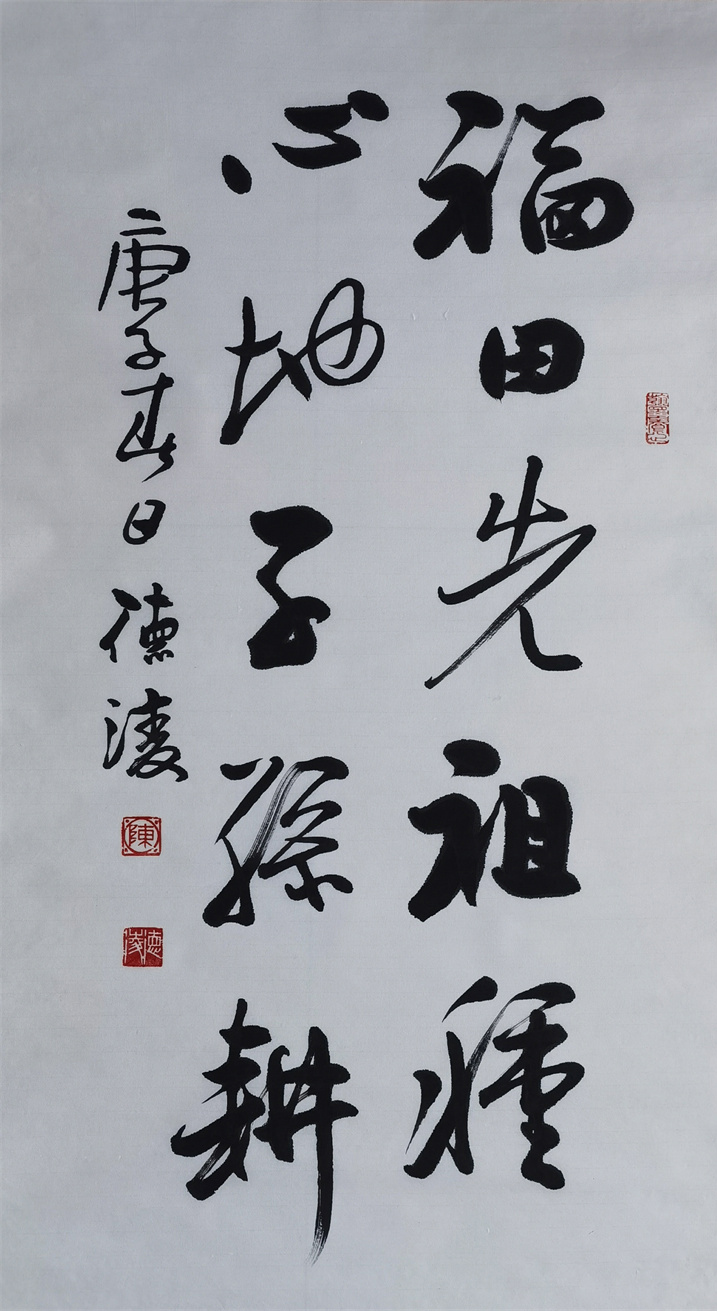 福田先祖種
心地子孫耕
庚子春日德凌
陳
德凌